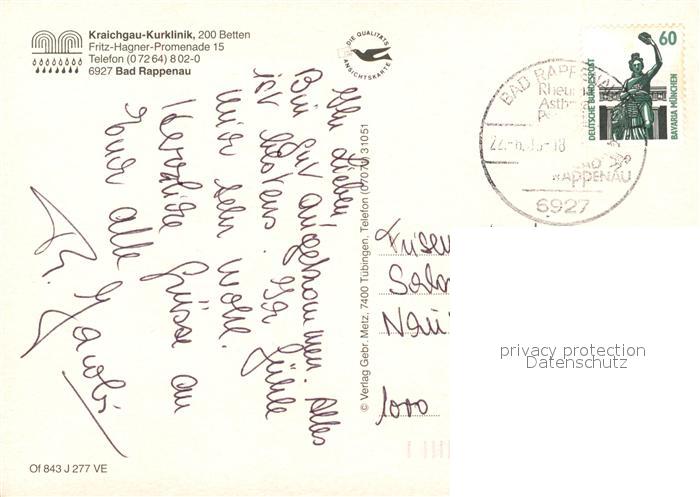 Kraichgau-Kurklinik, 200 Betten
Fritz-Hagner-Promenade 15
Telefon (0 72 64) 8 02-0
6927 Bad Rappenau
DIE QUALITÄTS
ANSICHTSKARTE
60
DEUTSCHE BUNDESPOST
BAVARIA MÜNCHEN
BAD RAPPENAU
Rheuma
Asthma
BAD
RAPPENAU
6927
Ihr Lieben
Bin gut angekommen. Alles
ist bestens. Ich fühle
mich sehr wohl.
Herzliche Grüsse an
Euch alle
© Verlag Gebr. Metz, 7400 Tübingen, Telefon (0 70 71) 31051
1000
privacy protection
Datenschutz
Of 843 J 277 VE